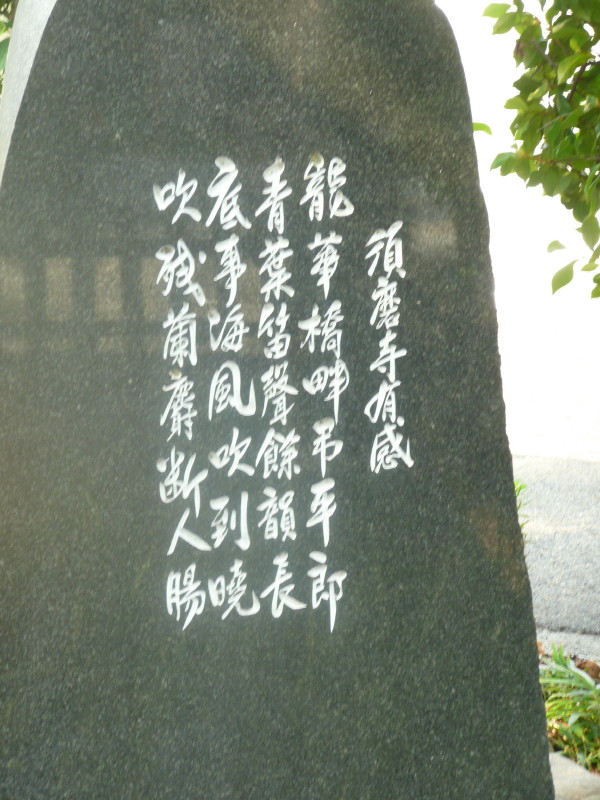 須磨寺有感
龍華橋畔弔平郎
青葉笛聲餘韻長
底事海風吹到曉
吹残蘭麝断人腸